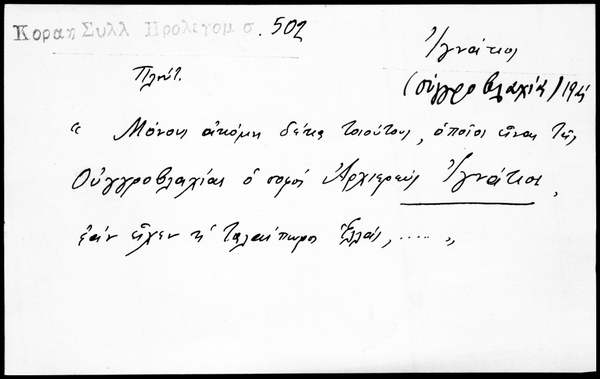 Κοραη Συλλ Προλεγομ σ. 502
Ἰγνάτιος
(οὐγγροβλαχία)
Πλούτ.
" Μόνους ἀκόμη δέκα τοιούτους, ὁποῖος εἶναι τῆς
Οὐγγροβλαχίας ὁ σοφὸς Ἀρχιερεὺς Ἰγνάτιος,
ἐὰν εἶχεν ἡ ταλαίπωρος Ἑλλάς, ..... "